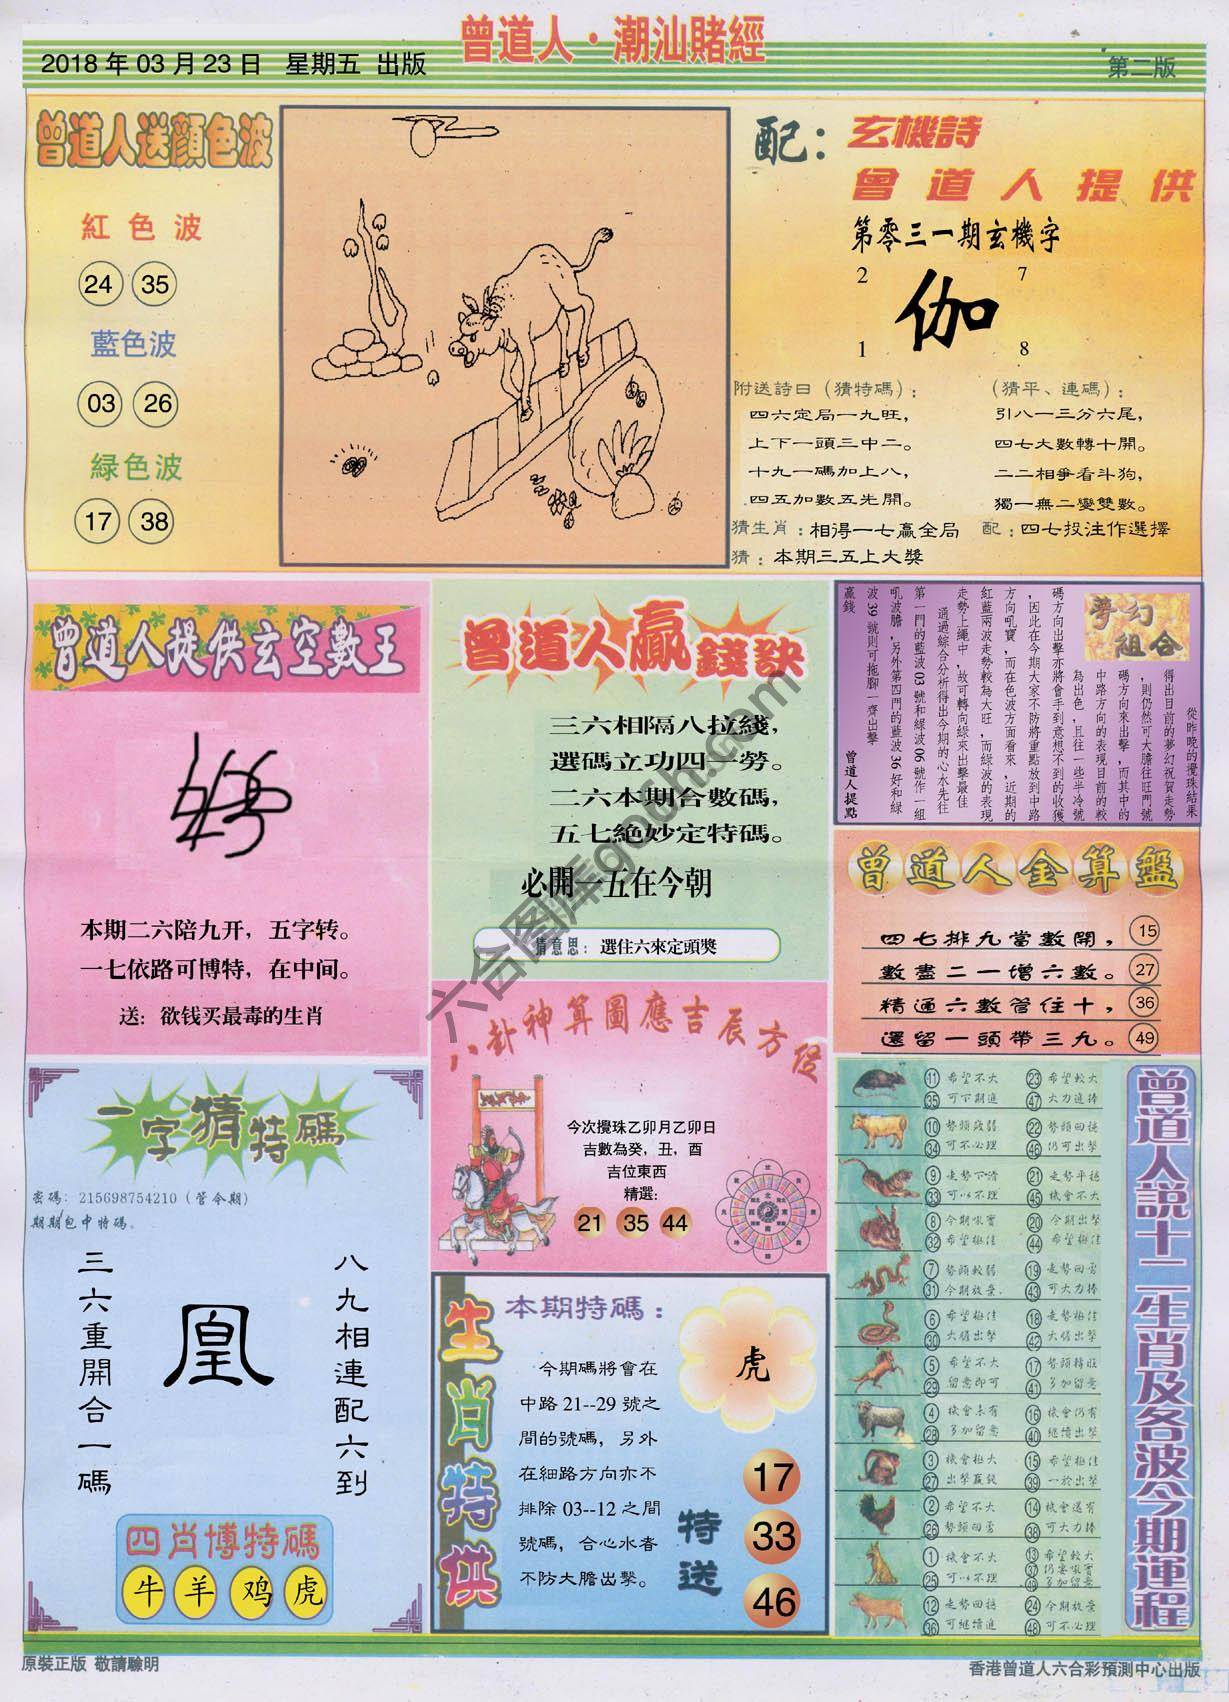 曾道人·潮汕賭經
2018 年 03 月 23 日 星期五 出版
第二版
曾道人送顏色波
紅色波
24 35
藍色波
03 26
緑色波
17 38
配：玄機詩
曾道人提供
第零三一期玄機字
2 7
伽
1 8
附送詩曰（猜特碼）：
四六定局一九旺，
上下一頭三中二。
十九一碼加上八，
四五加數五先開。
（猜平、連碼）：
引八一三分六尾，
四七大數轉十開。
二二相爭看斗狗，
獨一無二變雙數。
猜生肖：相得一七贏全局
配：四七投注作選擇
猜：本期三五上大獎
曾道人提供玄空數王
本期二六陪九开，五字转。
一七依路可博特，在中间。
送：欲钱买最毒的生肖
曾道人贏錢訣
三六相隔八拉綫，
選碼立功四一勞。
二六本期合數碼，
五七絶妙定特碼。
必開一五在今朝
猜意思：選住六來定頭獎
夢幻組合
從昨晚的攪珠結果
得出目前的夢幻祝賀走勢
，則仍然可大膽往旺門號
碼方向來出擊，而其中的
中路方向的表現目前的較
為出色，且往一些半冷號
碼方向出擊亦將會手到意想不到的收獲
，因此在今期大家不防將重點放到中路
方向吼寶，而在色波方面看來，近期的
紅藍兩波走勢較為大旺，而綠波的表現
走勢上繩中，故可轉向綠來出擊最佳
通過綜合分析得出今期的心水先往
第一門的藍波 03 號和綠波 06 號作一組
吼波膽，另外第四門的藍波 36 好和綠
波 39 號則可拖腳一齊出擊
贏錢
曾道人提點
曾道人金算盤
四七排九當數開， 15
數盡二一增六數。 27
精通六數管住十， 36
還留一頭帶三九。 49
八卦神算圖應吉辰方位
今次攪珠乙卯月乙卯日
吉數為癸，丑，酉
吉位東西
精選：
21 35 44
一字猜特碼
密碼：215698754210（管令期）
期期包中特碼。
八九相連配六到
凰
三六重開合一碼
四肖博特碼
牛 羊 鸡 虎
生肖特供
本期特碼：
虎
今期碼將會在
中路 21--29 號之
間的號碼，另外
在細路方向亦不
排除 03--12 之間
號碼，合心水者
不防大膽出擊。
特送
17
33
46
曾道人說十二生肖及各波今期運程
11 希望不大 23 希望較大
35 可下期進 47 大力進捧
10 勢頭微弱 22 勢頭回穩
34 可不必理 46 仍可出擊
9 走勢下滑 21 走勢平穩
33 可以不理 45 機會不大
8 今期吼實 20 今期出擊
32 希望極佳 44 希望極佳
7 勢頭較弱 19 走勢回勇
31 今期放棄 43 可大力捧
6 希望極佳 18 走勢極佳
30 大膽出擊 42 大膽出擊
5 希望不大 17 勢頭轉旺
29 留意即可 41 多加留意
4 機會未有 16 機會仍有
28 多加留意 40 繼續出擊
3 機會極大 15 希望極佳
27 出擊贏錢 39 一於出擊
2 希望不大 14 機會還有
26 勢頭回勇 38 可大力捧
1 機會不大 13 希望較大
25 可以不理 37 仍要吼實
49 多加留意
12 走勢回穩 24 今期放棄
36 可繼續進 48 可不必理
原裝正版 敬請驗明
香港曾道人六合彩預測中心出版
六合图库go6ch.com